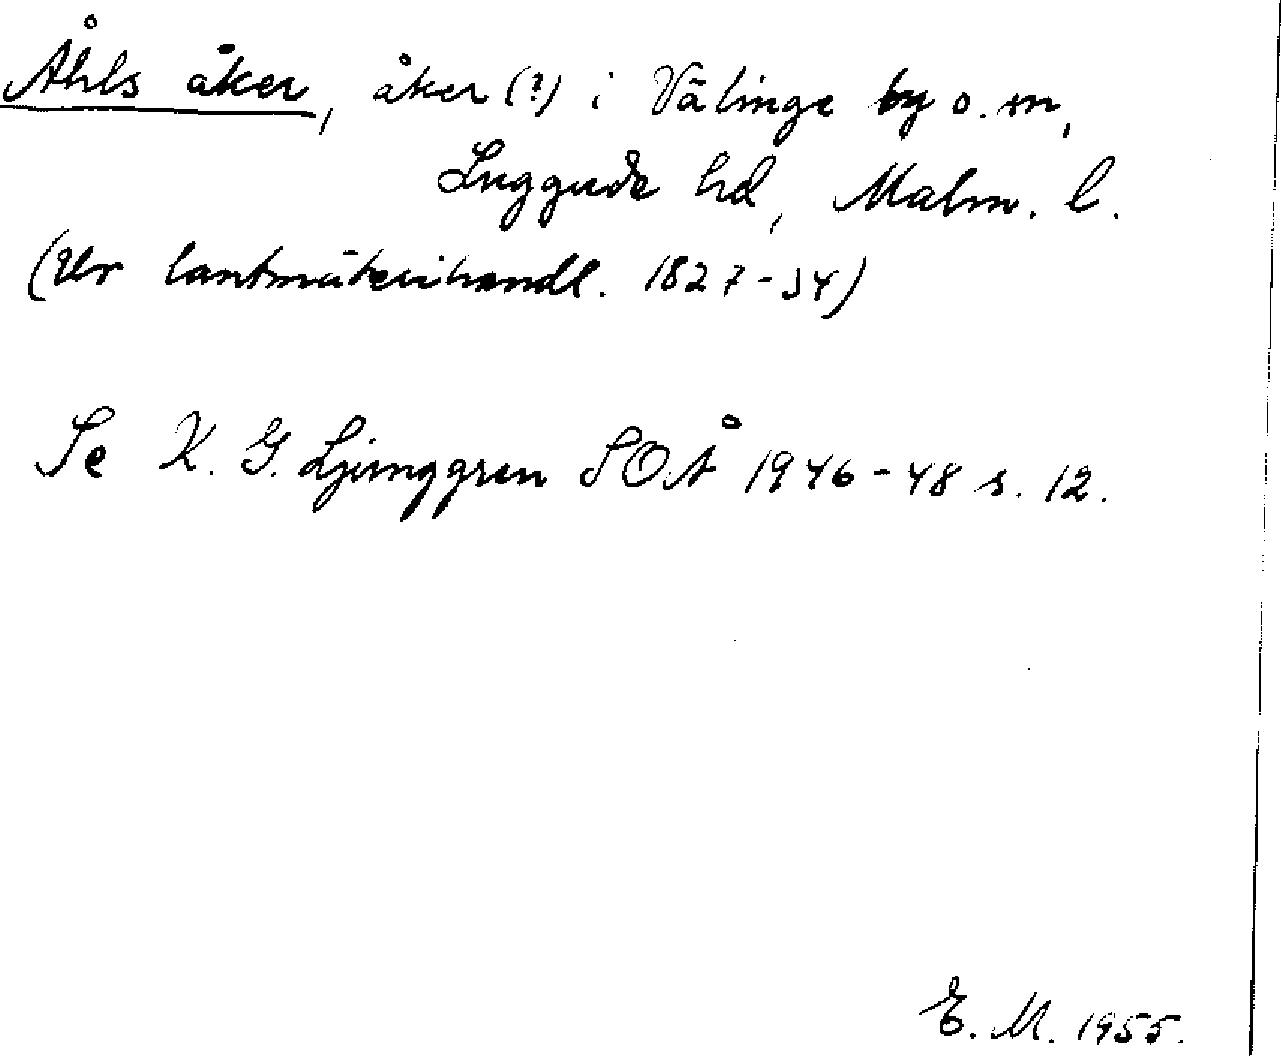 Åhls åker, åker (?) i Välinge by o. sn,
Luggude hd, Malm. l.
(Ur lantmäterihandl. 1827-34)
Se K. G. Ljunggren SOÅ 1946-48 s. 12.
E. M. 1955.